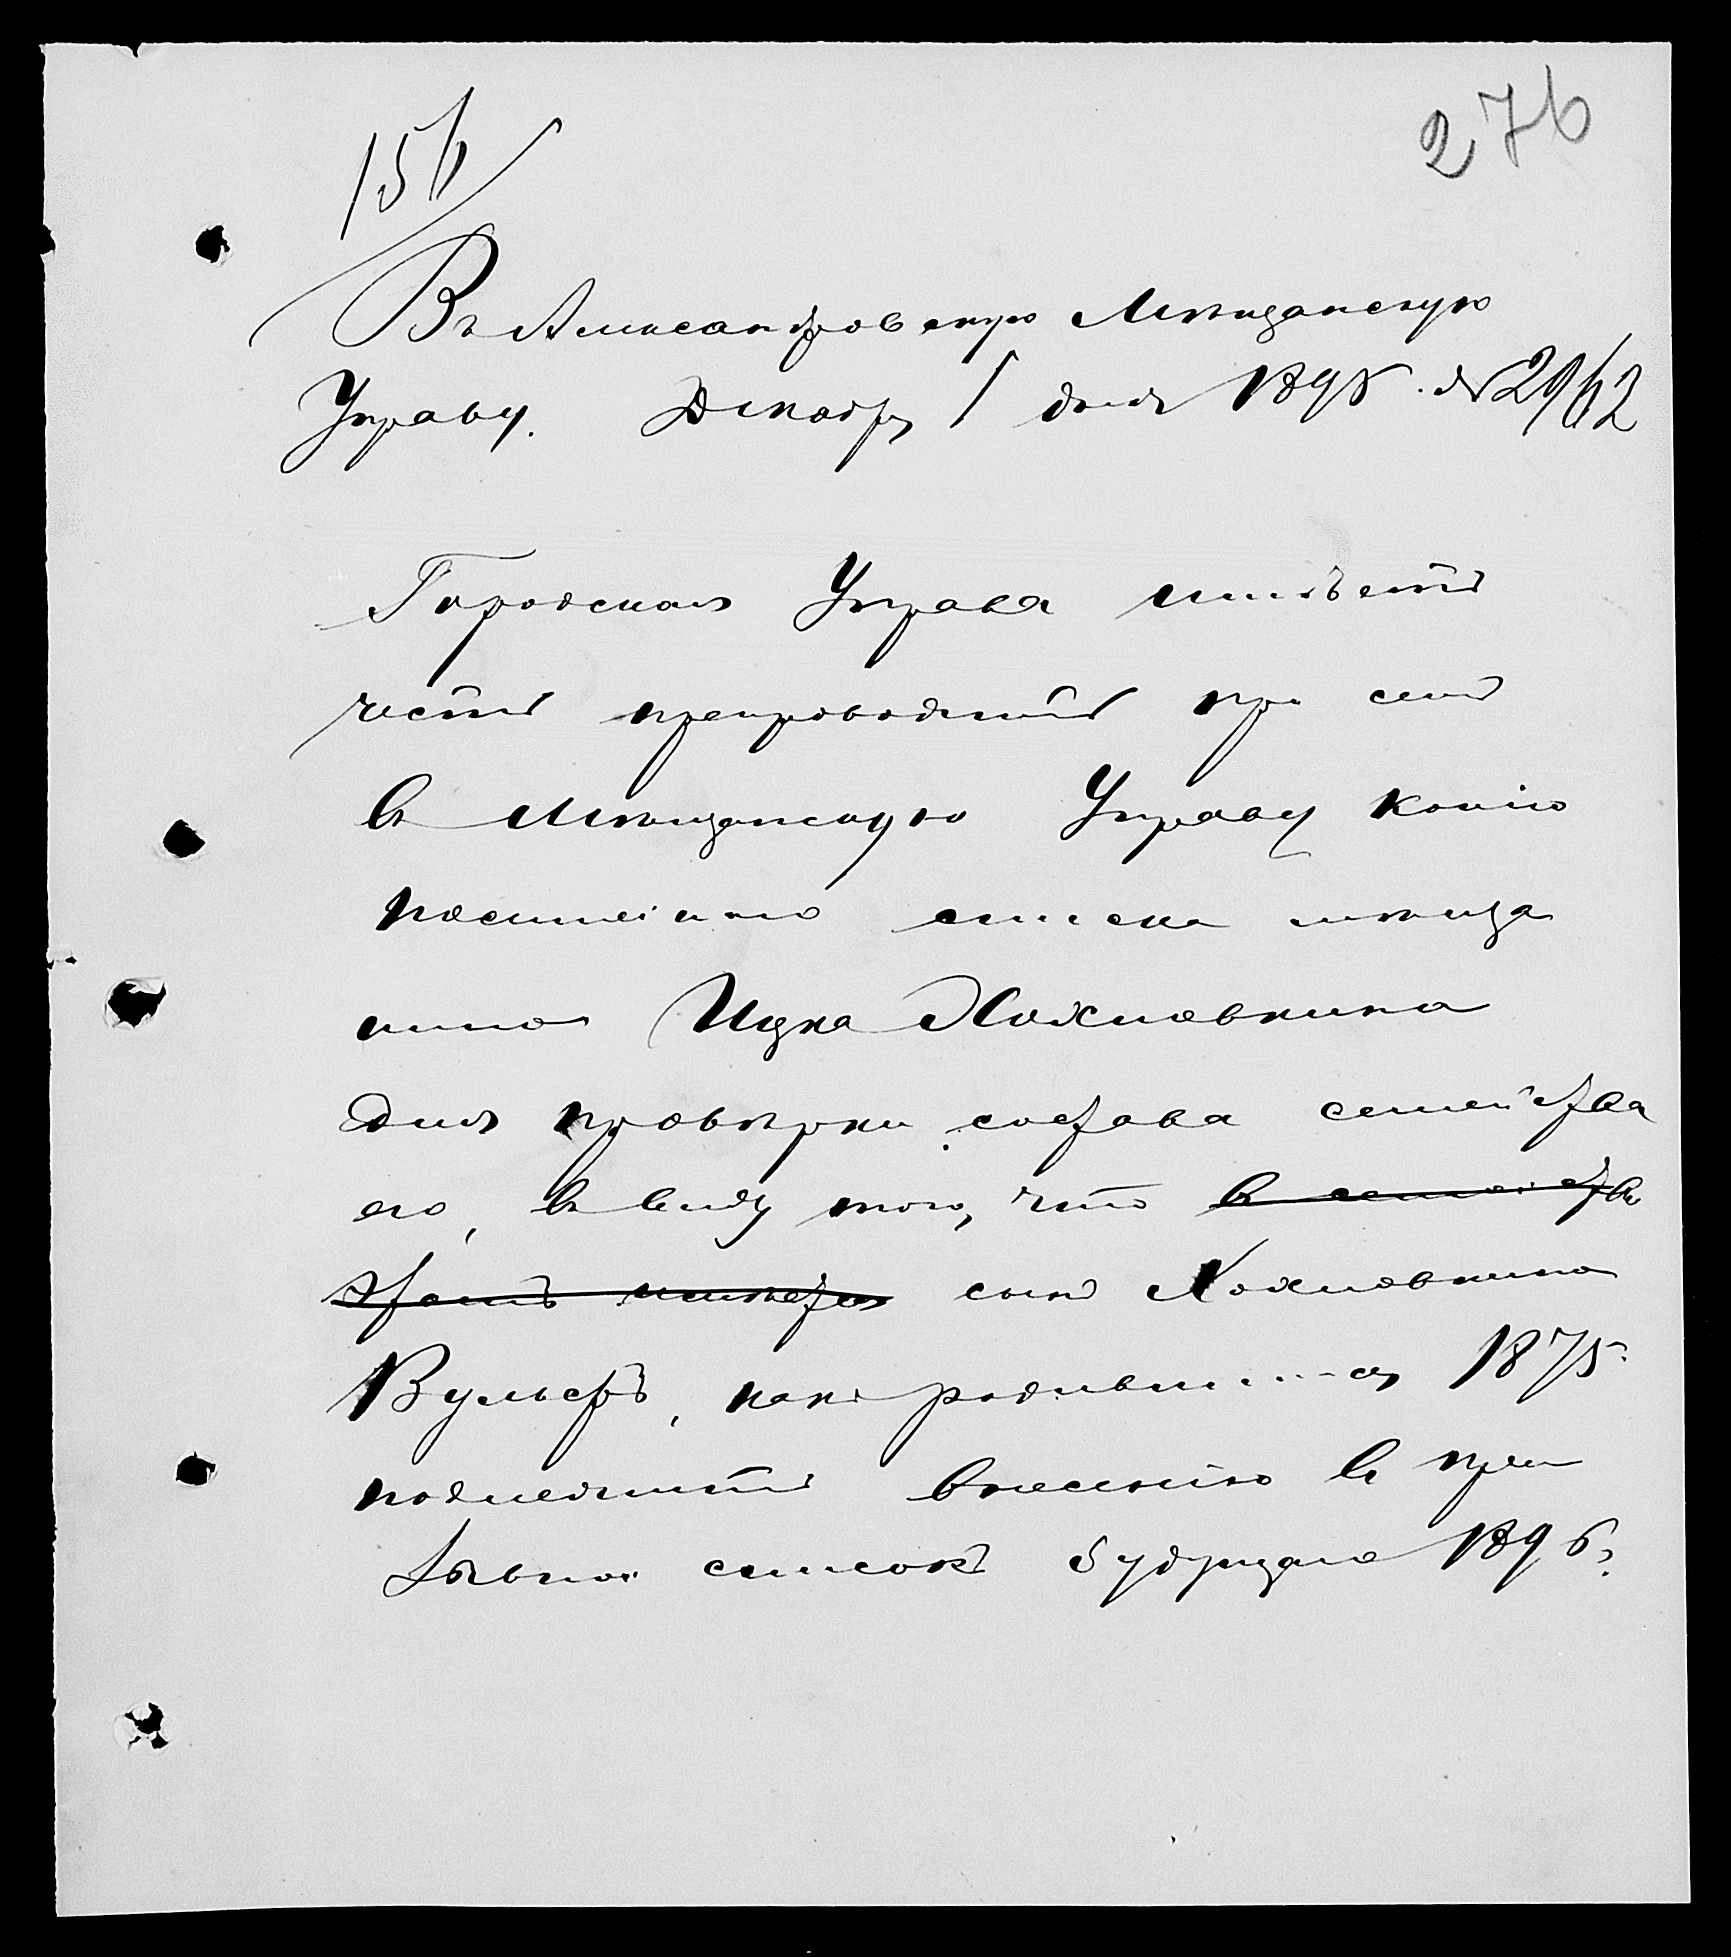 276
156
Въ Александровскую Мѣщанскую
Управу. Декабр 1 дня 1895. № 2962
Городская Управа имѣетъ
честь препроводить при семъ
въ Мѣщанскую Управу копію
посемейного списка мѣща
нина Ицка Хохловкина
для провѣрки состава семейства
его, въ виду того, что в семействѣ
сынъ Хохловкина
Вульфъ, какъ родившійся 1875
подлежитъ внесенію въ при
зывной списокъ будущаго 1896 г.